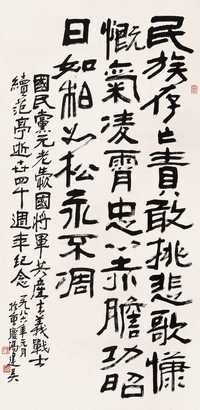 民族存亡責敢挑悲歌慷
慨氣凌霄忠心赤膽功昭
日如柏松永不凋
國民黨元老愛國將軍共產主義戰士
續范亭逝世四十週年紀念 一九八六年元月
於重慶馮建吳